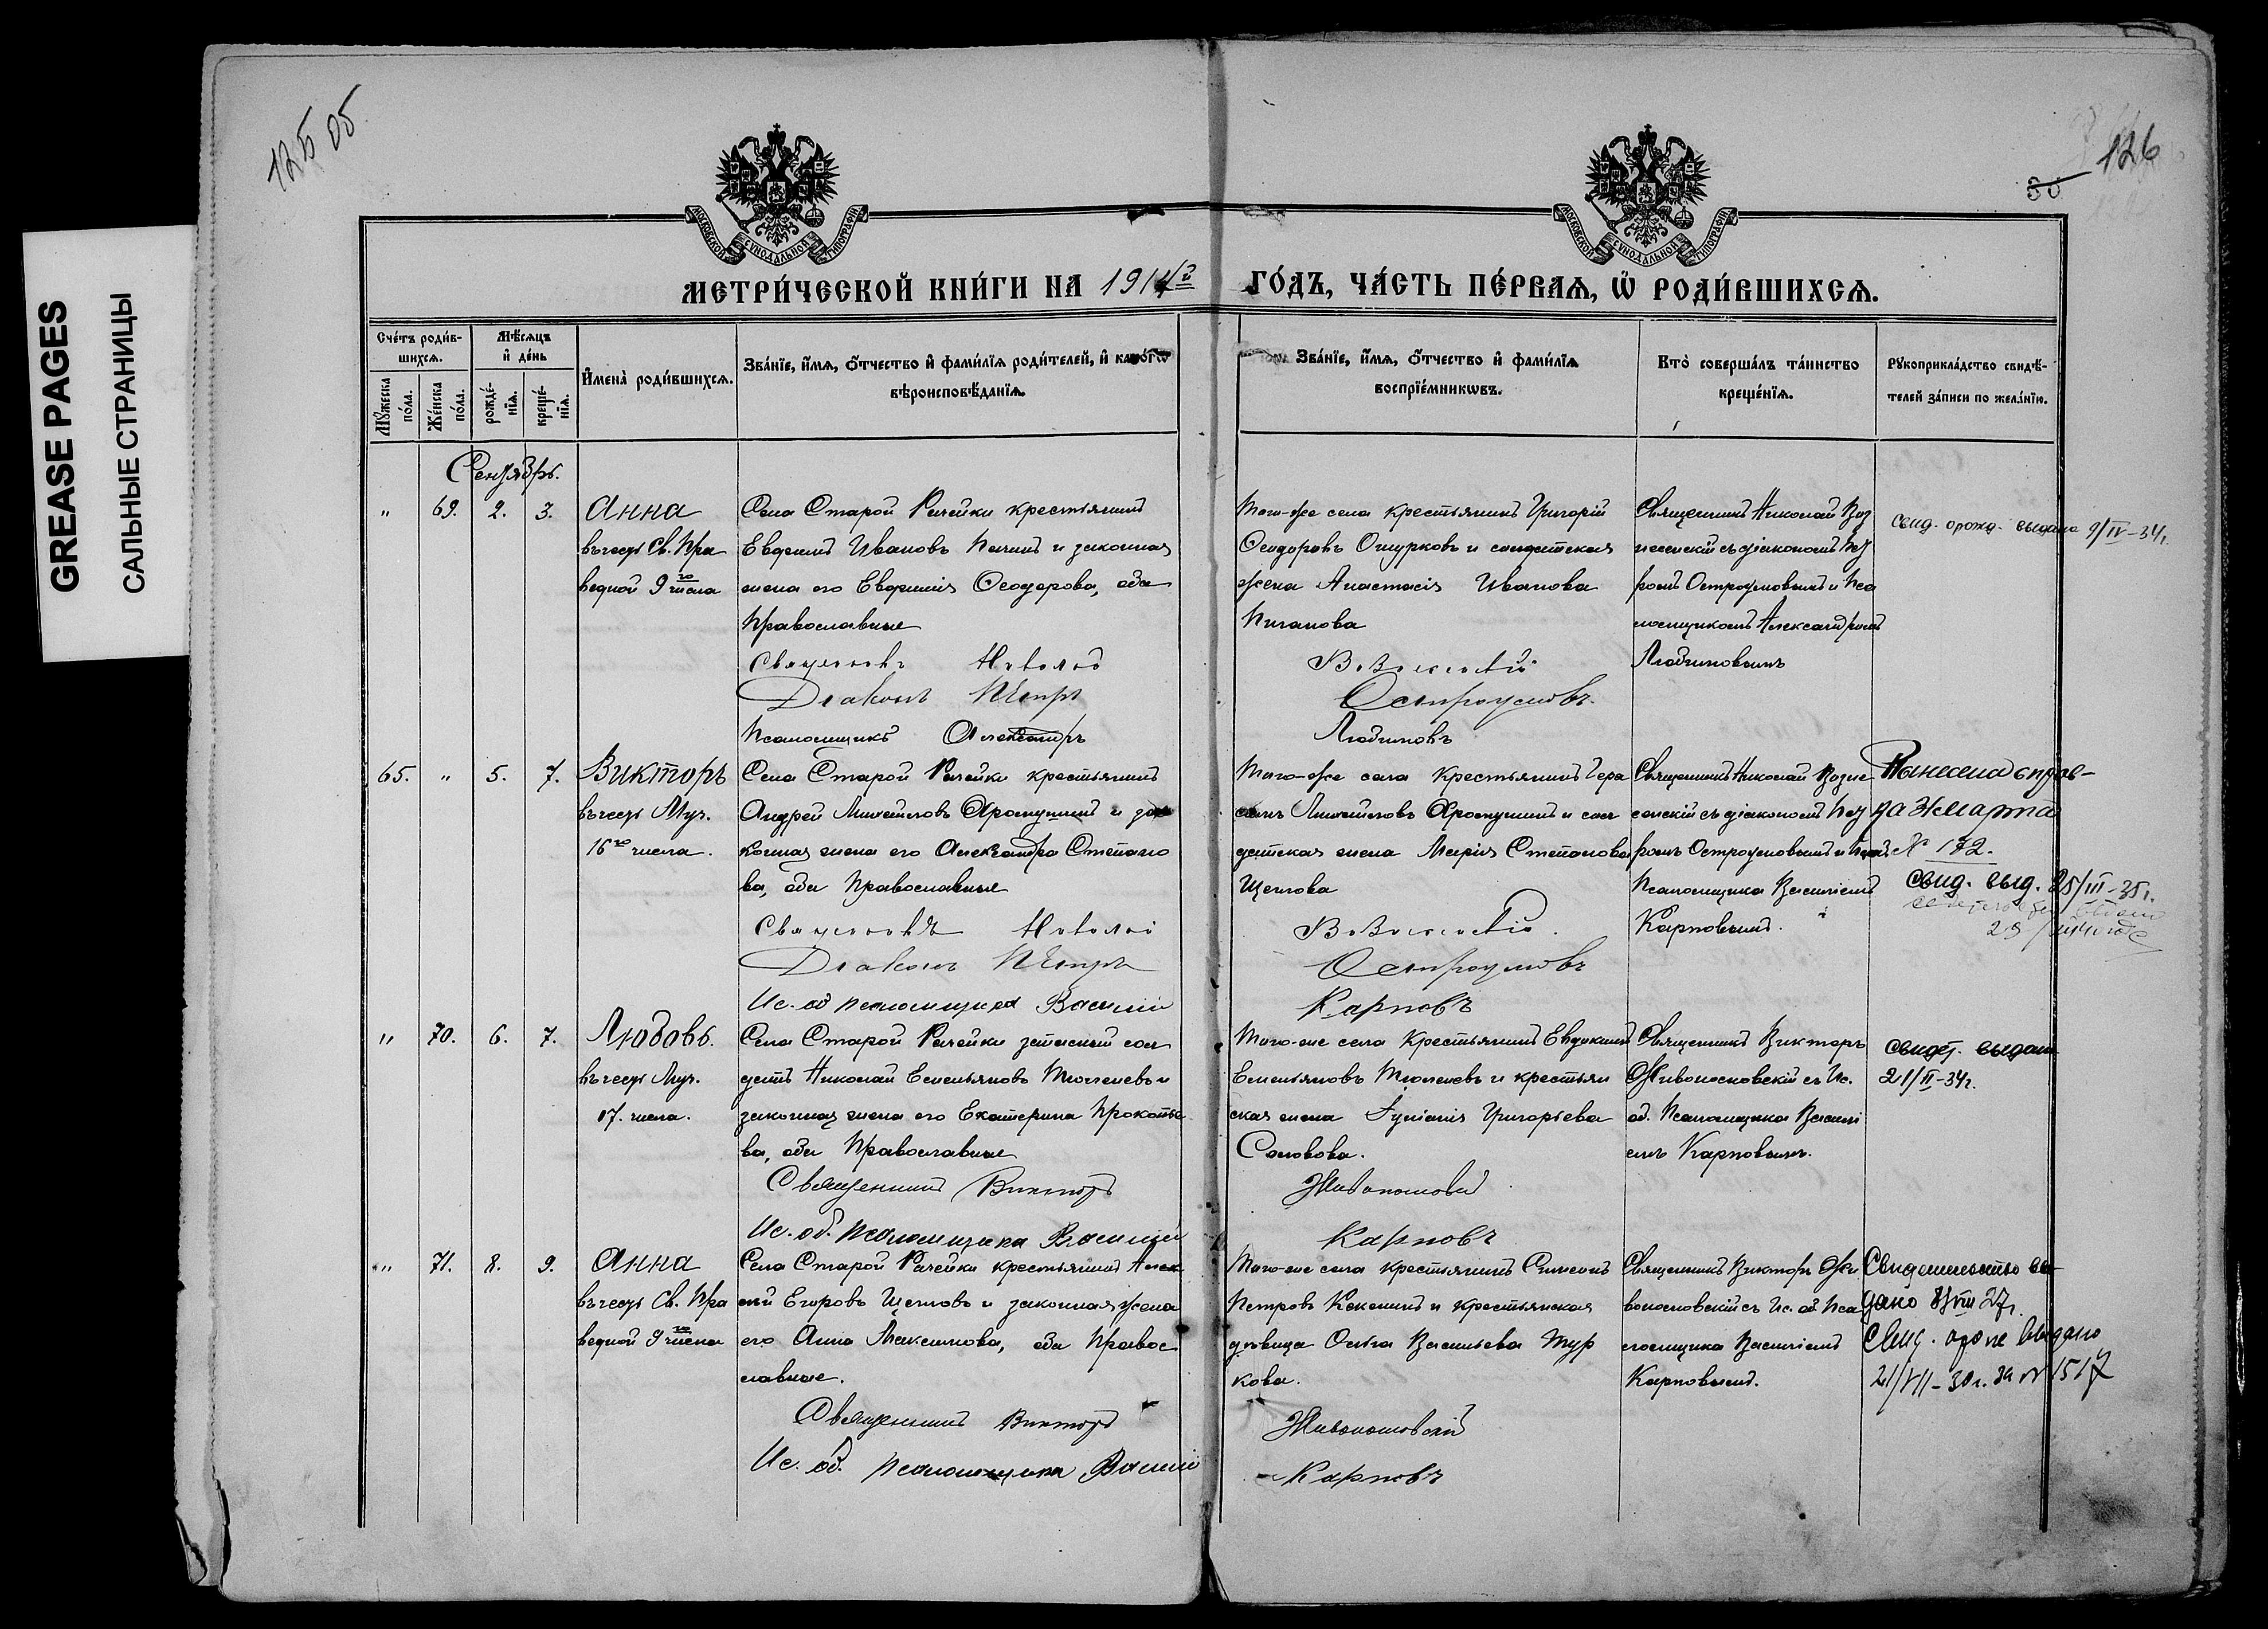 GREASE PAGES
САЛЬНЫЕ СТРАНИЦЫ
126
МОСКОВСКОЙ СУНОДАЛЬНОЙ ТИПОГРАФІИ
МОСКОВСКОЙ СУНОДАЛЬНОЙ ТИПОГРАФІИ
МЕТРИ́ЧЕСКОЙ КНИ́ГИ НА 1914 го́дъ, ЧА́СТЬ ПЕ́РВАЯ, Ѡ҆ РОДИ́ВШИХСЯ.
Сче́тъ роди́в-
шихся.
Мѣ́сяцъ
и҆ де́нь
Мꙋ́жеска
по́ла.
Же́нска
по́ла.
рожде́-
нїя.
креще́-
нїя.
И҆мена̀ роди́вшихся.
Зва́нїе, и҆́мя, ѻ҆́тчество и҆ фами́лїя роди́телей, и҆ како́гѡ
вѣроисповѣ́данїя.
Зва́нїе, и҆́мя, ѻ҆́тчество и҆ фами́лїя
воспрїе́мникѡвъ.
Кто̀ соверша́лъ та́инство
креще́нїя.
Рꙋкоприкла́дство свидѣ́-
телей за́писи по жела́нїю.
Сентябрь.
" 69. 2. 3. Анна
въ честь Св. Пра
ведной 9го числа
Села Старой Рачейки крестьянинъ
Евдокимъ Ивановъ и законная
жена его Евфимія Ѳеодорова, оба
Православные
Священникъ Николай
Діаконъ Петръ
Псаломщикъ Александръ
Того-же села крестьянинъ Григорій
Ѳеодоровъ Ошурковъ и солдатская
жена Анастасія Иванова
Пиганова
Вознесенскій
Остроумовъ.
Любимовъ
Священникъ Николай Воз
несенскій съ діакономъ Пет
ромъ Остроумовымъ и Пса
ломщикомъ Александромъ
Любимовымъ
Свид. о рожд. выдано 9/IV-34г.
65. " 5. 7. Викторъ
въ честь Муч.
16го числа.
Села Старой Рачейки крестьянинъ
Андрей Михайловъ и за
конная жена его Александра Степано
ва, оба Православные
Священникъ Николай
Діаконъ Петръ
Ис. об псаломщика Василій
Того-же села крестьянинъ Гера
симъ Михайловъ и сол
датская жена Марія Степанова
Щеглова
Вознесенскій.
Остроумовъ
Карповъ
Священникъ Николай Возне
сенскій съ діакономъ Пет
ромъ Остроумовымъ и
Псаломщика Василіемъ
Карповымъ.
№ 172.
свид. выд. 25/III-35г.
" 70. 6. 7. Любовь.
въ честь Муч.
17. числа.
Села Старой Рачейки запасный сол
датъ Николай Емельяновъ Тюгаевъ и
законная жена его Екатерина Прокопье
ва, оба Православные
Священникъ Викторъ
Ис. об. псаломщика Василій
Того-же села крестьянинъ Евдокимъ
Емельяновъ и крестьян
ская жена Григорьева
Соловова.
Карповъ
Священникъ Викторъ
Живоносновскій съ Ис.
об. Псаломщика Васили
емъ Карповымъ.
свидет. выдано
21/II-34г.
" 71. 8. 9. Анна
въ честь Св. Пра
ведной 9го числа
Села Старой Рачейки крестьянинъ Алек
сѣй Егоровъ Щегловъ и законная жена
его Анна Максимова, оба Правос
лавные.
Священникъ Викторъ
Ис. об. псаломщика Василій
Того-же села крестьянинъ Симеонъ
Петровъ и крестьянская
вдовица Ольга Васильева Тур
кова.
Живоносновскій
Карповъ
Священникъ Викторъ Жи
воносновскій съ Ис. об. Пса
ломщика Василіемъ
Карповымъ.
Свидетельство вы-
дано VIII 27г.
Свид. о рожд. выдано
21/VII-30г. за № 1517